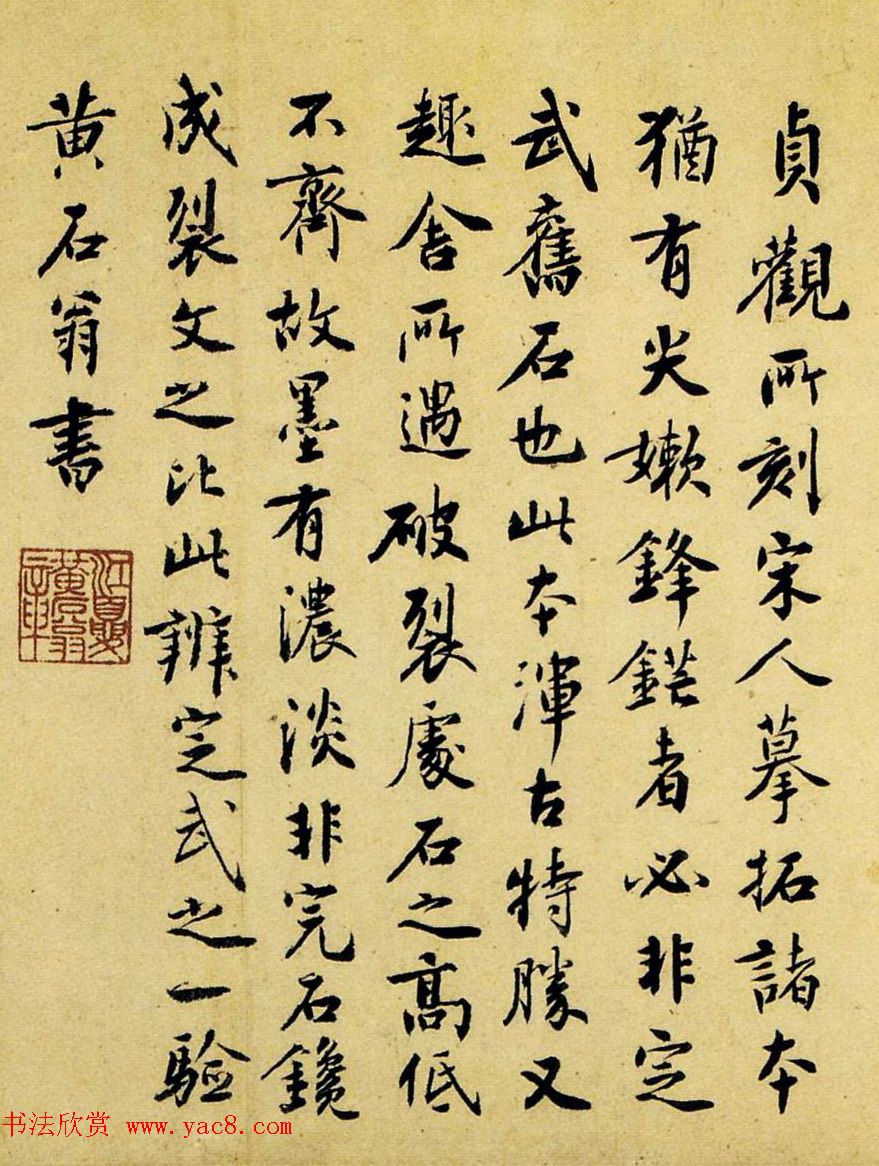 貞觀所刻宋人摹拓諸本
猶有尖嫰鋒鋩者必非定
武舊石也此本渾古特勝又
趣舎所遇破裂處石之高低
不齊故墨有濃淡非完石鑱
成裂文之比此辨定武之一驗
黄石翁書
江夏黄石翁
书法欣赏 www.yac8.com